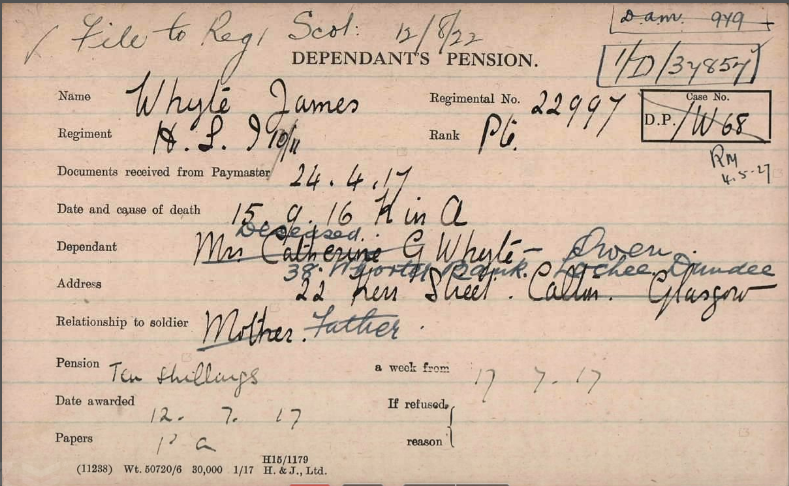 Dam. 949
✓ File to Regl Scot: 12/8/22
DEPENDANT'S PENSION.
1/D/37857
Name Whyte James Regimental No. 22997
Case No.
D.P. /W68
Regiment H.L.I 10/11 Rank Pte.
RM
4.5.27
Documents received from Paymaster 24.4.17
Date and cause of death 15.9.16 K in A
Deceased.
Dependant Mrs Catherine G Whyte - Owen.
38. Bank. Lochee Dundee
Address 22 Kerr Street. Calton. Glasgow
Relationship to soldier Mother. Father.
Pension Ten shillings a week from 17 7.17
Date awarded 12. 7. 17 If refused,
Papers reason
H15/1179
(11238) Wt. 50720/6 30,000 1/17 H. & J., Ltd.